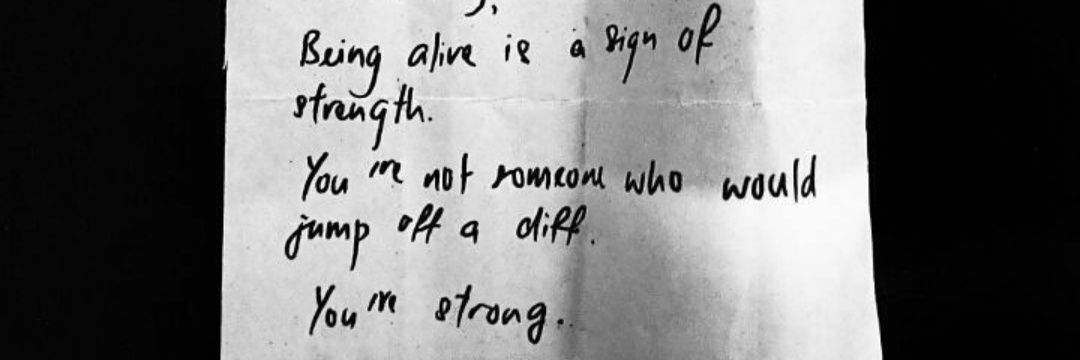 Being alive is a sign of
strength.
You're not someone who would
jump off a cliff.
You're strong.